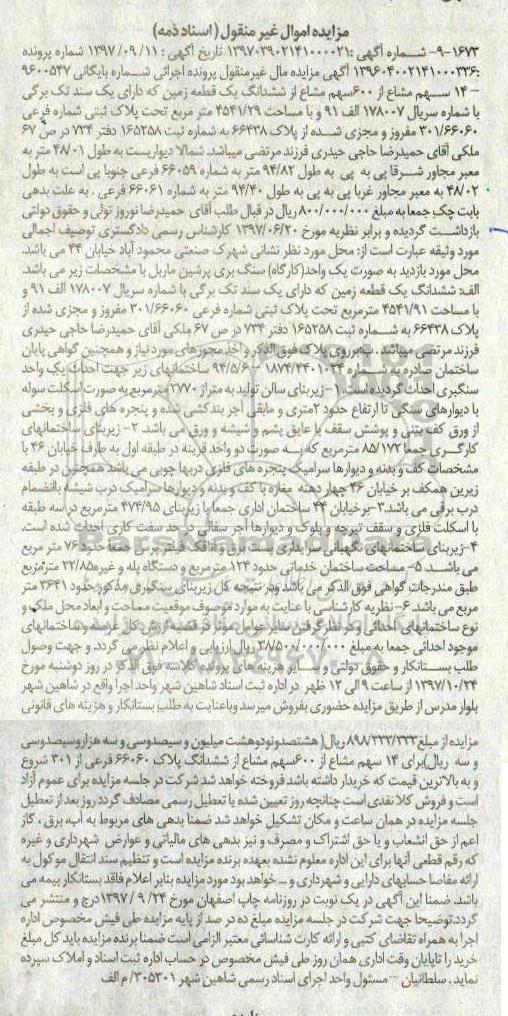 مزایده اموال غیر منقول ( اسناد ذمه)
۹-۱۶۷۳- شماره آگهی :۱۳۹۷۰۳۹۰۲۱۴۱۰۰۰۰۲۱ تاریخ آگهی : ۱۳۹۷/۰۹/۱۱ شماره پرونده
:۱۳۹۶۰۴۰۰۲۱۴۱۰۰۰۳۳۶ آگهی مزایده مال غیرمنقول پرونده اجرائی شماره بایگانی ۹۶۰۰۵۴۷
– ۱۴ سهم مشاع از ۶۰۰سهم مشاع از ششدانگ یک قطعه زمین که دارای یک سند تک برگی
با شماره سریال ۱۷۸۰۰۷ الف ۹۱ و با مساحت ۴۵۴۱/۲۹ متر مربع تحت پلاک ثبتی شماره فرعی
۳۰۱/۶۶۰۶۰ مفروز و مجزی شده از پلاک ۶۶۴۳۸ به شماره ثبت ۱۶۵۲۵۸ دفتر ۷۳۴ در ص ۶۷
ملکی آقای حمیدرضا حاجی حیدری فرزند مرتضی میباشد. شمالا دیواریست به طول ۴۸/۰۱ متر به
معبر مجاور شرقا پی به پی به طول ۹۴/۸۲ متر به شماره ۶۶۰۵۹ فرعی جنوبا پی است به طول
۴۸/۰۲ به معبر مجاور غربا پی به پی به طول ۹۴/۴۰ متر به شماره ۶۶۰۶۱ فرعی . به علت بدهی
بابت چک جمعا به مبلغ ۸۰۰/۰۰۰/۰۰۰ ریال در قبال طلب آقای حمیدرضا نوروز توئی و حقوق دولتی
بازداشت گردیده و برابر نظریه مورخ ۱۳۹۷/۰۶/۲۰ کارشناس رسمی دادگستری توصیف اجمالی
مورد وثیقه عبارت است از: محل مورد نظر نشانی شهرک صنعتی محمود آباد خیابان ۴۴ می باشد.
محل مورد بازدید به صورت یک واحد(کارگاه) سنگ بری پرشین ماربل با مشخصات زیر می باشد.
الف: ششدانگ یک قطعه زمین که دارای یک سند تک برگی با شماره سریال ۱۷۸۰۰۷ الف ۹۱ و
با مساحت ۴۵۴۱/۹۱ مترمربع تحت پلاک ثبتی شماره فرعی ۳۰۱/۶۶۰۶۰ مفروز و مجزی شده از
پلاک ۶۶۴۳۸ به شماره ثبت ۱۶۵۲۵۸ دفتر ۷۳۴ در ص ۶۷ ملکی آقای حمیدرضا حاجی حیدری
فرزند مرتضی میباشد . ب:برروی پلاک فوق الذکر و اخذ مجوزهای مورد نیاز و همچنین گواهی پایان
ساختمان صادره به شماره ۱۸۷۴/۴۴۰۱۰۳۴ ۹۴/۵/۶ ساختمانهای زیر جهت احداث یک واحد
سنگبری احداث گردیده است. ۱- زیربنای سالن تولید به متراژ ۲۷۷۰ مترمربع به صورت اسکلت سوله
با دیوارهای سنگی تا ارتفاع حدود ۲متری و مابقی آجر بندکشی شده و پنجره های فلزی و بخشی
از ورق کف بتنی و پوشش سقف با عایق پشم و شیشه و ورق می باشد. ۲- زیربنای ساختمانهای
کارگری جمعا ۸۵/۱۷۲ مترمربع که به صورت دو واحد قرینه در طبقه اول به طرف خیابان ۴۶ با
مشخصات کف و بدنه و دیوارها سرامیک پنجره های فلزی دربها چوبی می باشد همچنین در طبقه
زیرین همکف بر خیابان ۴۶ چهار دهنه مغازه با کف و بدنه و دیوارها سرامیک درب شیشه باانضمام
درب برقی می باشد.۳-برخیابان ۴۴ ساختمان اداری جمعا با زیربنای ۴۷۴/۹۵ مترمربع در سه طبقه
با اسکلت فلزی و سقف تیرچه و بلوک و دیوارها آجر سفالی در حد سفت کاری احداث شده است.
۴-زیربنای ساختمانهای نگهبانی سرایداری پست برق و اتاقک فیلتر پرس جمعا حدود ۷۶ متر مربع
می باشد. ۵- مساحت ساختمان خدماتی حدود ۱۲۴ مترمربع و دستگاه پله و غیره۲۲/۸۵ مترمربع
طبق مندرجات گواهی فوق الذکر می باشد ودر نتیجه کل زیربنای سنگبری مذکور حدود ۳۶۴۱ متر
مربع می باشد. ۶- نظریه کارشناسی با عنایت به موارد موصوف موقعیت مساحت و ابعاد محل ملک و
نوع ساختمانهای احداثی و در نظر گرفتن سایر عوامل موثر در قضیه ارزش کل عرصه و ساختمانهای
موجود احداثی جمعا به مبلغ ۳۸۵۰۰/۰۰۰/۰۰۰ ریال ارزیابی و اعلام نظر می گردد. و جهت وصول
طلب بستانکار و حقوق دولتی و سایر هزینه های پرونده کلاسه فوق الذکر در روز دوشنبه مورخ
۱۳۹۷/۱۰/۲۴ از ساعت ۹ الی ۱۲ ظهر در اداره ثبت اسناد شاهین شهر واحد اجرا واقع در شاهین شهر
بلوار مدرس از طریق مزایده حضوری بفروش میرسد وباعنایت به طلب بستانکار و هزینه های قانونی
مزایده از مبلغ۸۹۸/۳۳۳/۳۳۳ ریال( هشتصدونودوهشت میلیون و سیصدوسی و سه هزاروسیصدوسی
و سه ریال)برای ۱۴ سهم مشاع از ۶۰۰سهم مشاع از ششدانگ پلاک ۶۶۰۶۰ فرعی از ۳۰۱ شروع
و به بالاترین قیمت که خریدار داشته باشد فروخته خواهد شد شرکت در جلسه مزایده برای عموم آزاد
است و فروش کلا نقدی است چنانچه روز تعیین شده با تعطیل رسمی مصادف گردد روز بعد از تعطیل
جلسه مزایده در همان ساعت و مکان تشکیل خواهد شد ضمنا بدهی های مربوط به آب، برق ، گاز
اعم از حق انشعاب و یا حق اشتراک و مصرف و نیز بدهی های مالیاتی و عوارض شهرداری و غیره
که رقم قطعی آنها برای این اداره معلوم نشده بعهده برنده مزایده است و تنظیم سند انتقال موکول به
ارائه مفاصا حسابهای دارایی و شهرداری و ... خواهد بود مورد مزایده بنابر اعلام فاقد بستانکار بیمه می
باشد. ضمنا این آگهی در یک نوبت در روزنامه چاپ اصفهان مورخ ۲۴/ ۹/ ۱۳۹۷ درج و منتشر می
گردد.توضیحا جهت شرکت در جلسه مزایده مبلغ ده در صد از پایه مزایده طی فیش مخصوص اداره
اجرا به همراه تقاضای کتبی و ارائه کارت شناسائی معتبر الزامی است ضمنا برنده مزایده باید کل مبلغ
خرید را تاپایان وقت اداری همان روز طی فیش مخصوص در حساب اداره ثبت اسناد و املاک سپرده
نماید . سلطانیان – مسئول واحد اجرای اسناد رسمی شاهین شهر ۳۰۵۳۰۱/ م الف